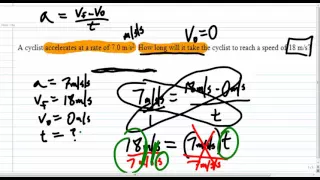 a = vf - vo / t
m/s/s
vo = 0
A cyclist accelerates at a rate of 7.0 m s². How long will it take the cyclist to reach a speed of 18 m/s?
a = 7 m/s/s
vf = 18 m/s
vo = 0 m/s
t = ?
7 m/s/s / 1 = 18 m/s - 0 m/s / t
18 m/s / 7 m/s/s = (7 m/s/s) t / 7 m/s/s